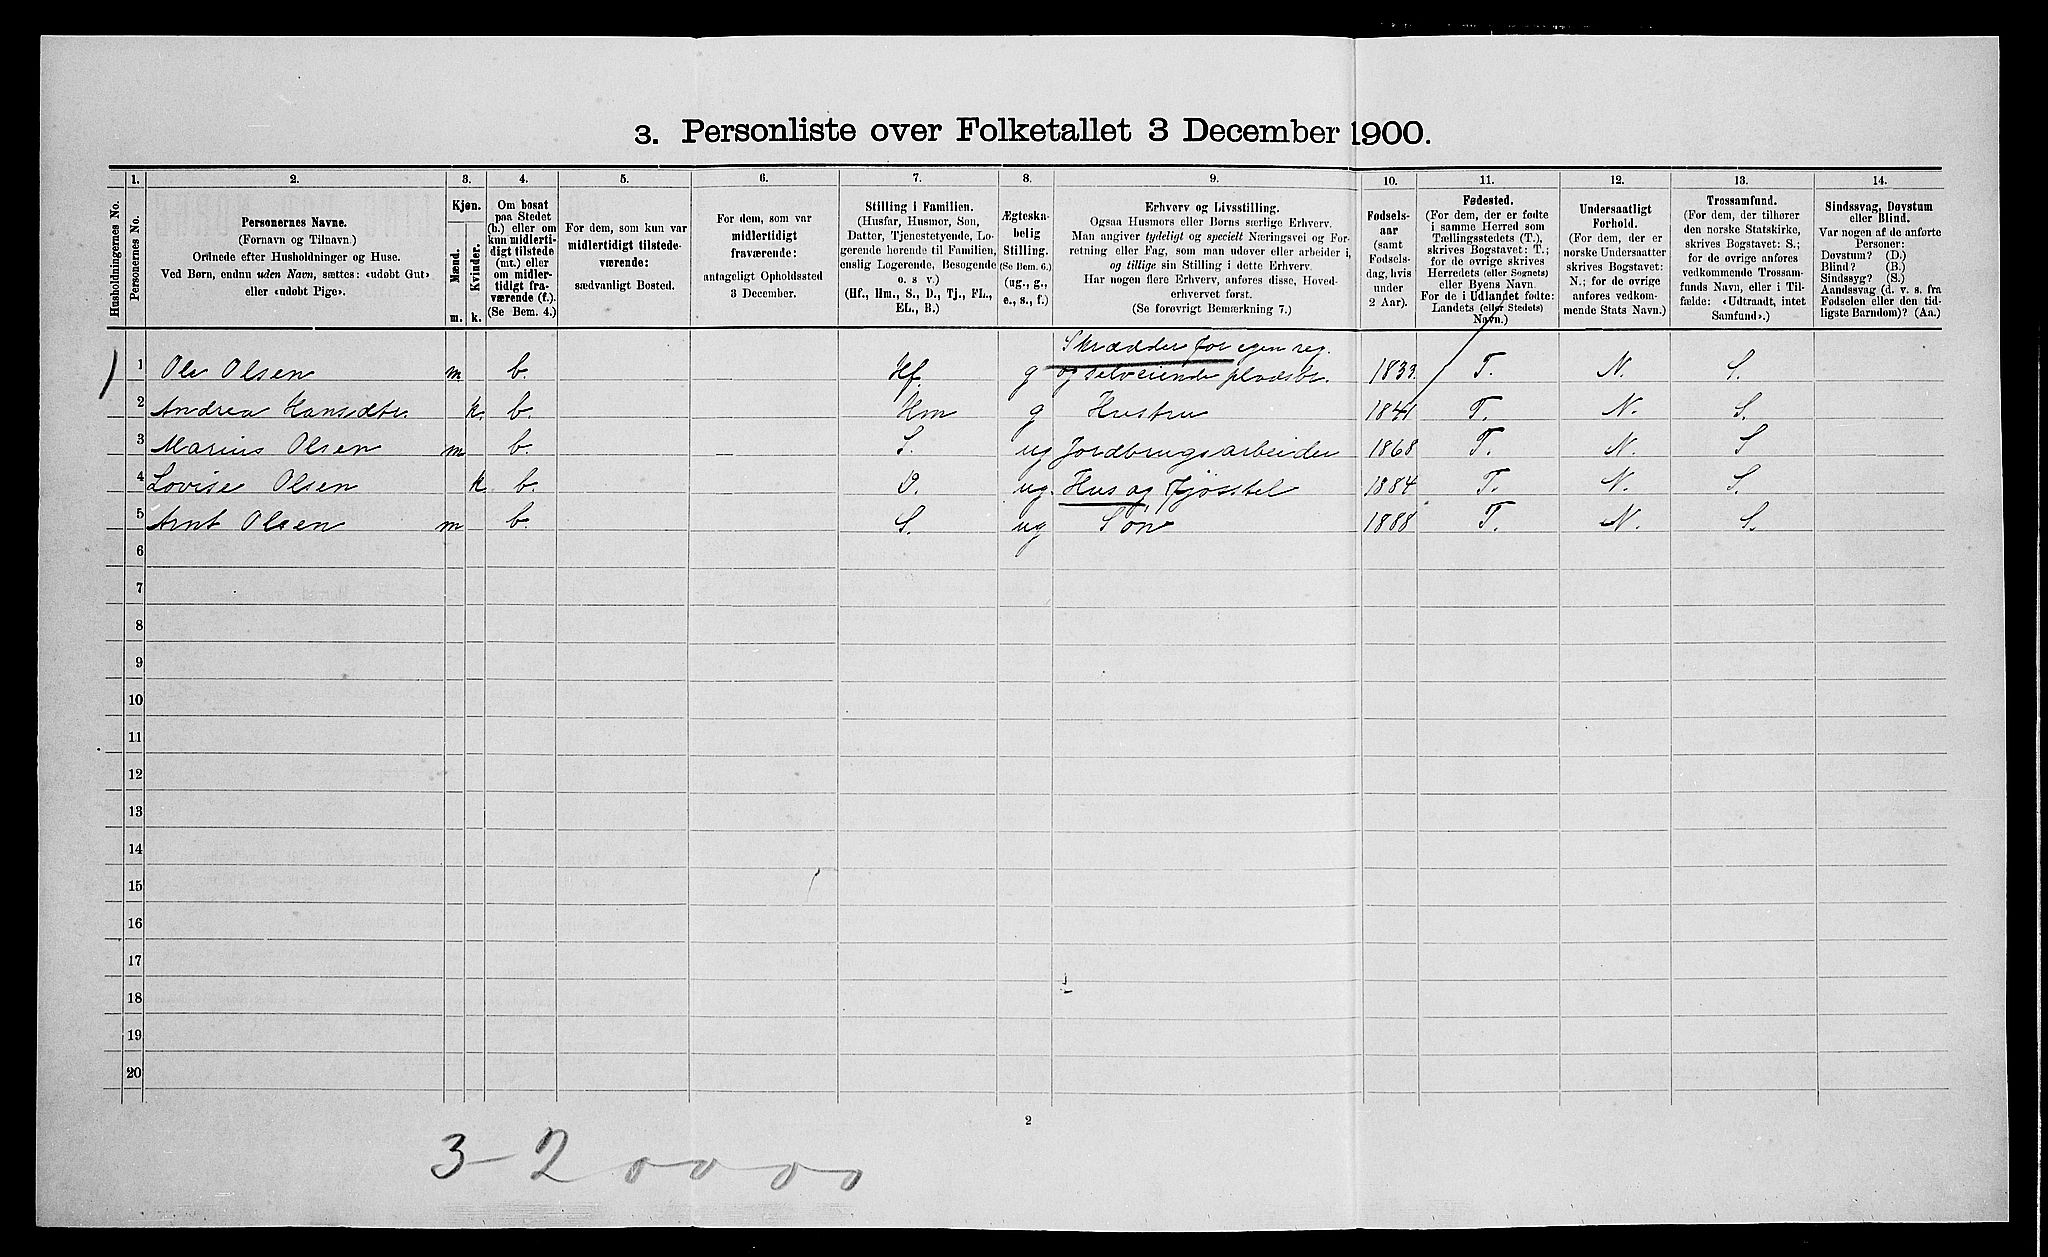 3. Personliste over Folketallet 3 December 1900.
Husholdningernes No.
1.
Personernes No.
2.
Personernes Navne.
(Fornavn og Tilnavn.)
Ordnede efter Husholdninger og Huse.
Ved Børn, endnu uden Navn, sættes: «udøbt Gut»
eller «udøbt Pige».
3.
Kjøn.
Mænd.
Kvinder.
m. k.
4.
Om bosat
paa Stedet
(b.) eller om
kun midlerti-
digt tilstede
(mt.) eller
om midler-
tidigt fra-
værende (f.).
(Se Bem. 4.)
5.
For dem, som kun var
midlertidigt tilstede-
værende:
sædvanligt Bosted.
6.
For dem, som var
midlertidigt
fraværende:
antageligt Opholdssted
3 December.
7.
Stilling i Familien.
(Husfar, Husmor, Søn,
Datter, Tjenestetyende, Lo-
gerende hørende til Familien,
enslig Logerende, Besøgende
o. s v.)
(Hf., Hm., S., D., Tj., FL.,
EL., B.)
8.
Ægteska-
belig
Stilling.
(Se Bem. 6.)
(ug., g.,
e., s., f.)
9.
Erhverv og Livsstilling.
Ogsaa Husmors eller Børns særlige Erhverv.
Man angiver tydeligt og specielt Næringsvei og For-
retning eller Fag, som man udøver eller arbeider i,
og tillige sin Stilling i dette Erhverv.
Har nogen flere Erhverv, anføres disse, Hoved-
erhvervet først.
(Se forøvrigt Bemærkning 7.)
10.
Fødsels-
aar
(samt
Fødsels-
dag, hvis
under
2 Aar).
11.
Fødested.
(For dem, der er fødte
i samme Herred som
Tællingsstedets (T.),
skrives Bogstavet: T.;
for de øvrige skrives
Herredets (eller Sognets)
eller Byens Navn.
For de i Udlandet fødte:
Landets (eller Stedets)
Navn.)
12.
Undersaatligt
Forhold.
(For dem, der er
norske Undersaatter
skrives Bogstavet:
N.; for de øvrige
anføres vedkom-
mende Stats Navn.)
13.
Trossamfund.
(For dem, der tilhører
den norske Statskirke,
skrives Bogstavet: S.;
for de øvrige anføres
vedkommende Trossam-
funds Navn, eller i Til-
fælde: «Udtraadt, intet
Samfund».)
14.
Sindssvag, Døvstum
eller Blind.
Var nogen af de anførte
Personer:
Døvstum? (D.)
Blind? (B.)
Sindssyg? (S.)
Aandssvag (d. v. s. fra
Fødselen eller den tid-
ligste Barndom)? (Aa.)
Skrædder for egen reg.
1 Ole Olsen m b. Hf. g og selveiende pladsbr. 1833 T. N. S.
2 Andrea Hansdtr k. b. Hm g Hustru 1841 T. N. S.
3 Marius Olsen m b. S. ug Jordbrugsarbeider 1868 T. N. S
4 Lovise Olsen k b. D. ug. Hus og Fjøsstel 1884 T. N. S.
5 Arnt Olsen m b. S. ug Søn 1888 T. N. S.
6
7
8
9
10
11
12
13
14
15
16
17
18
19
20
2
3-2 0 0 0 0